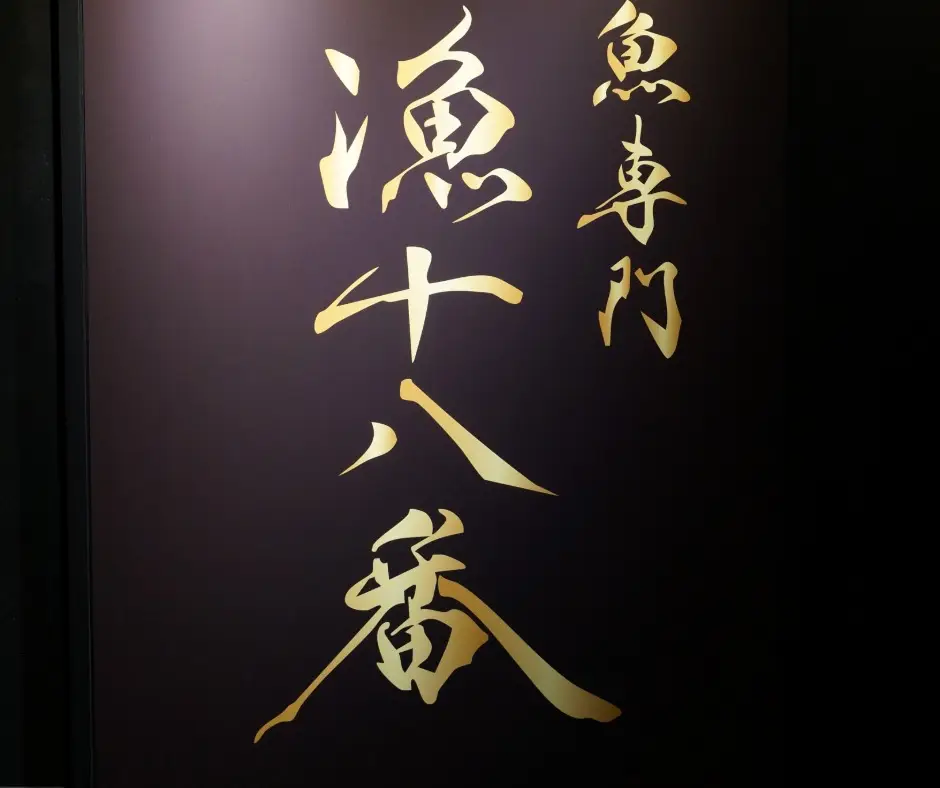 魚専門
漁十八番